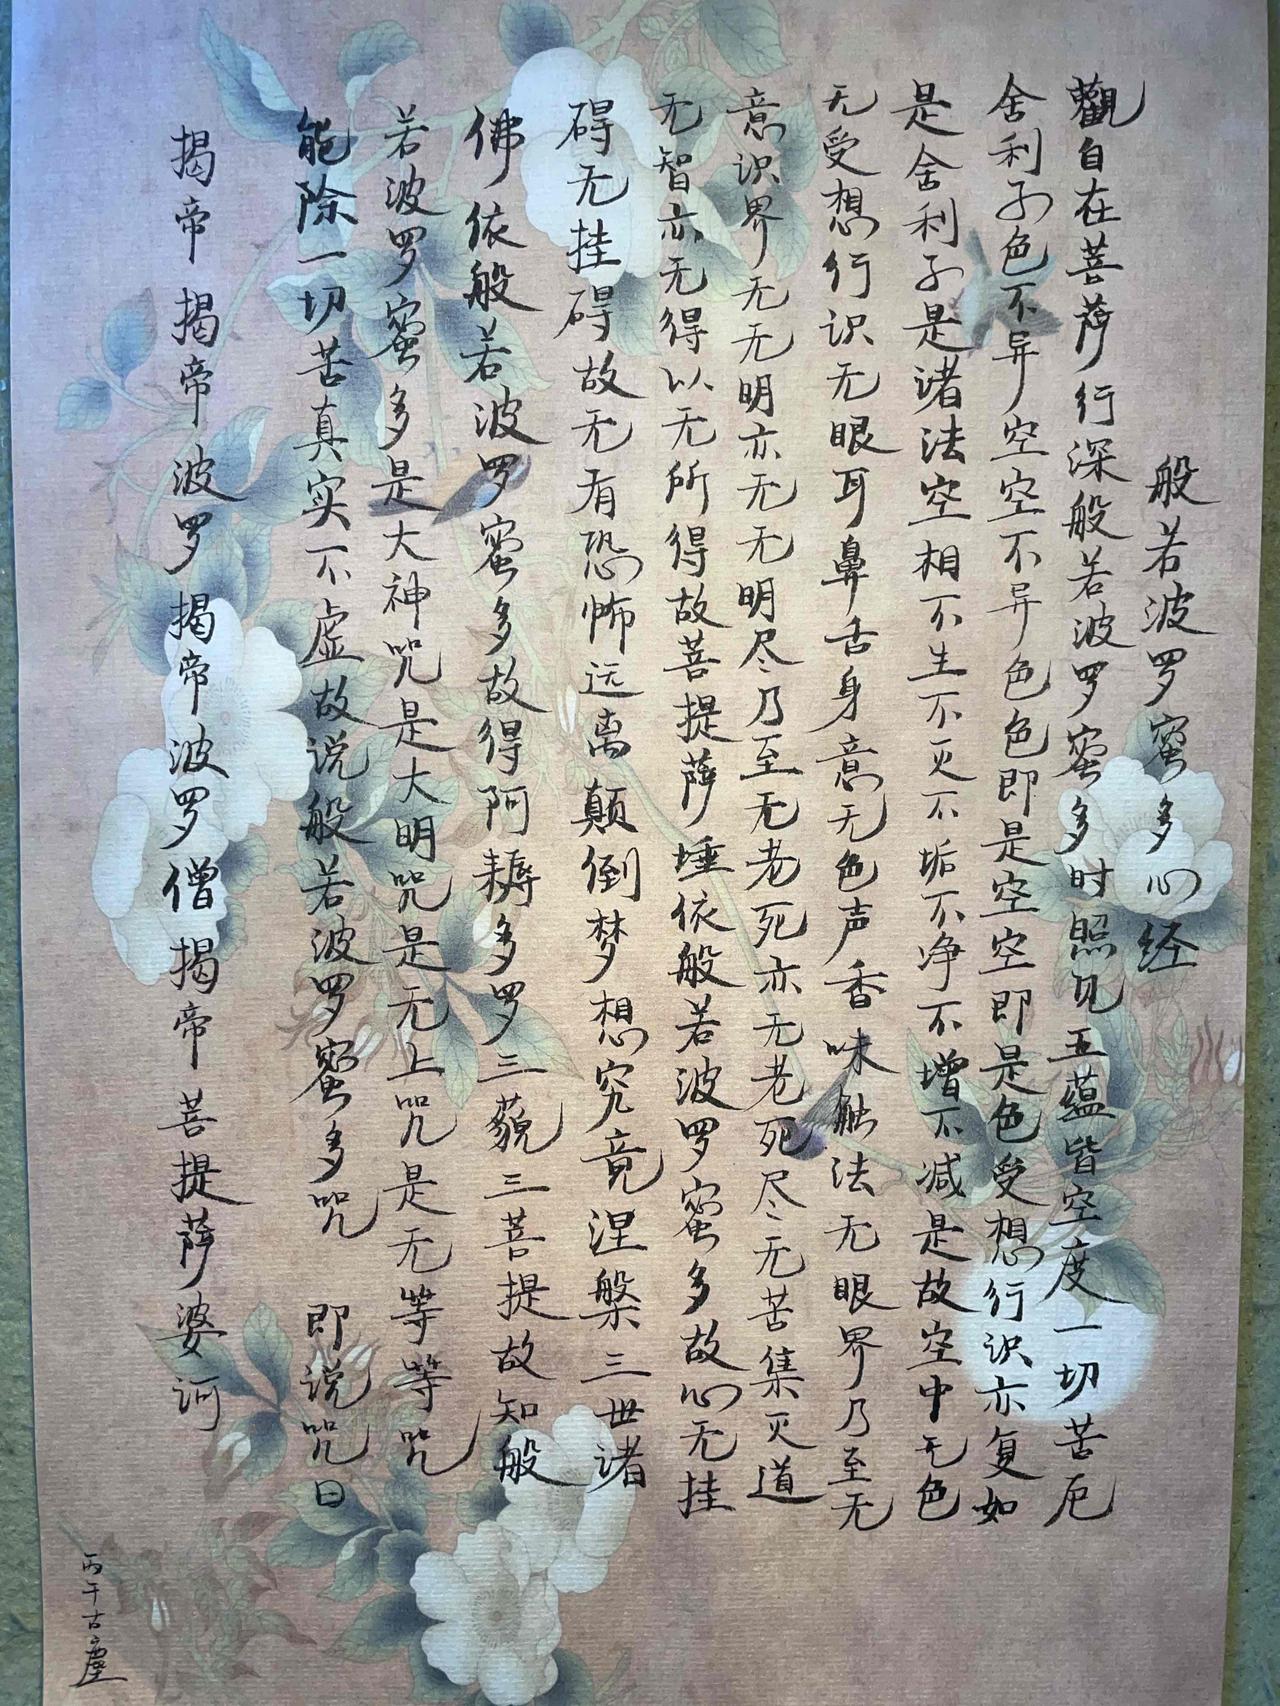 般若波罗蜜多心经
觀自在菩萨行深般若波罗蜜多时照见五蕴皆空度一切苦厄
舍利子色不异空空不异色色即是空空即是色受想行识亦复如
是舍利子是诸法空相不生不灭不垢不净不增不减是故空中无色
无受想行识无眼耳鼻舌身意无色声香味触法无眼界乃至无
意识界无无明亦无无明尽乃至无老死亦无老死尽无苦集灭道
无智亦无得以无所得故菩提萨埵依般若波罗蜜多故心无挂
碍无挂碍故无有恐怖远离颠倒梦想究竟涅槃三世诸
佛依般若波罗蜜多故得阿耨多罗三藐三菩提故知般
若波罗蜜多是大神咒是大明咒是无上咒是无等等咒
能除一切苦真实不虚故说般若波罗蜜多咒 即说咒曰
揭帝揭帝波罗揭帝波罗僧揭帝菩提萨婆诃
丙午古塵